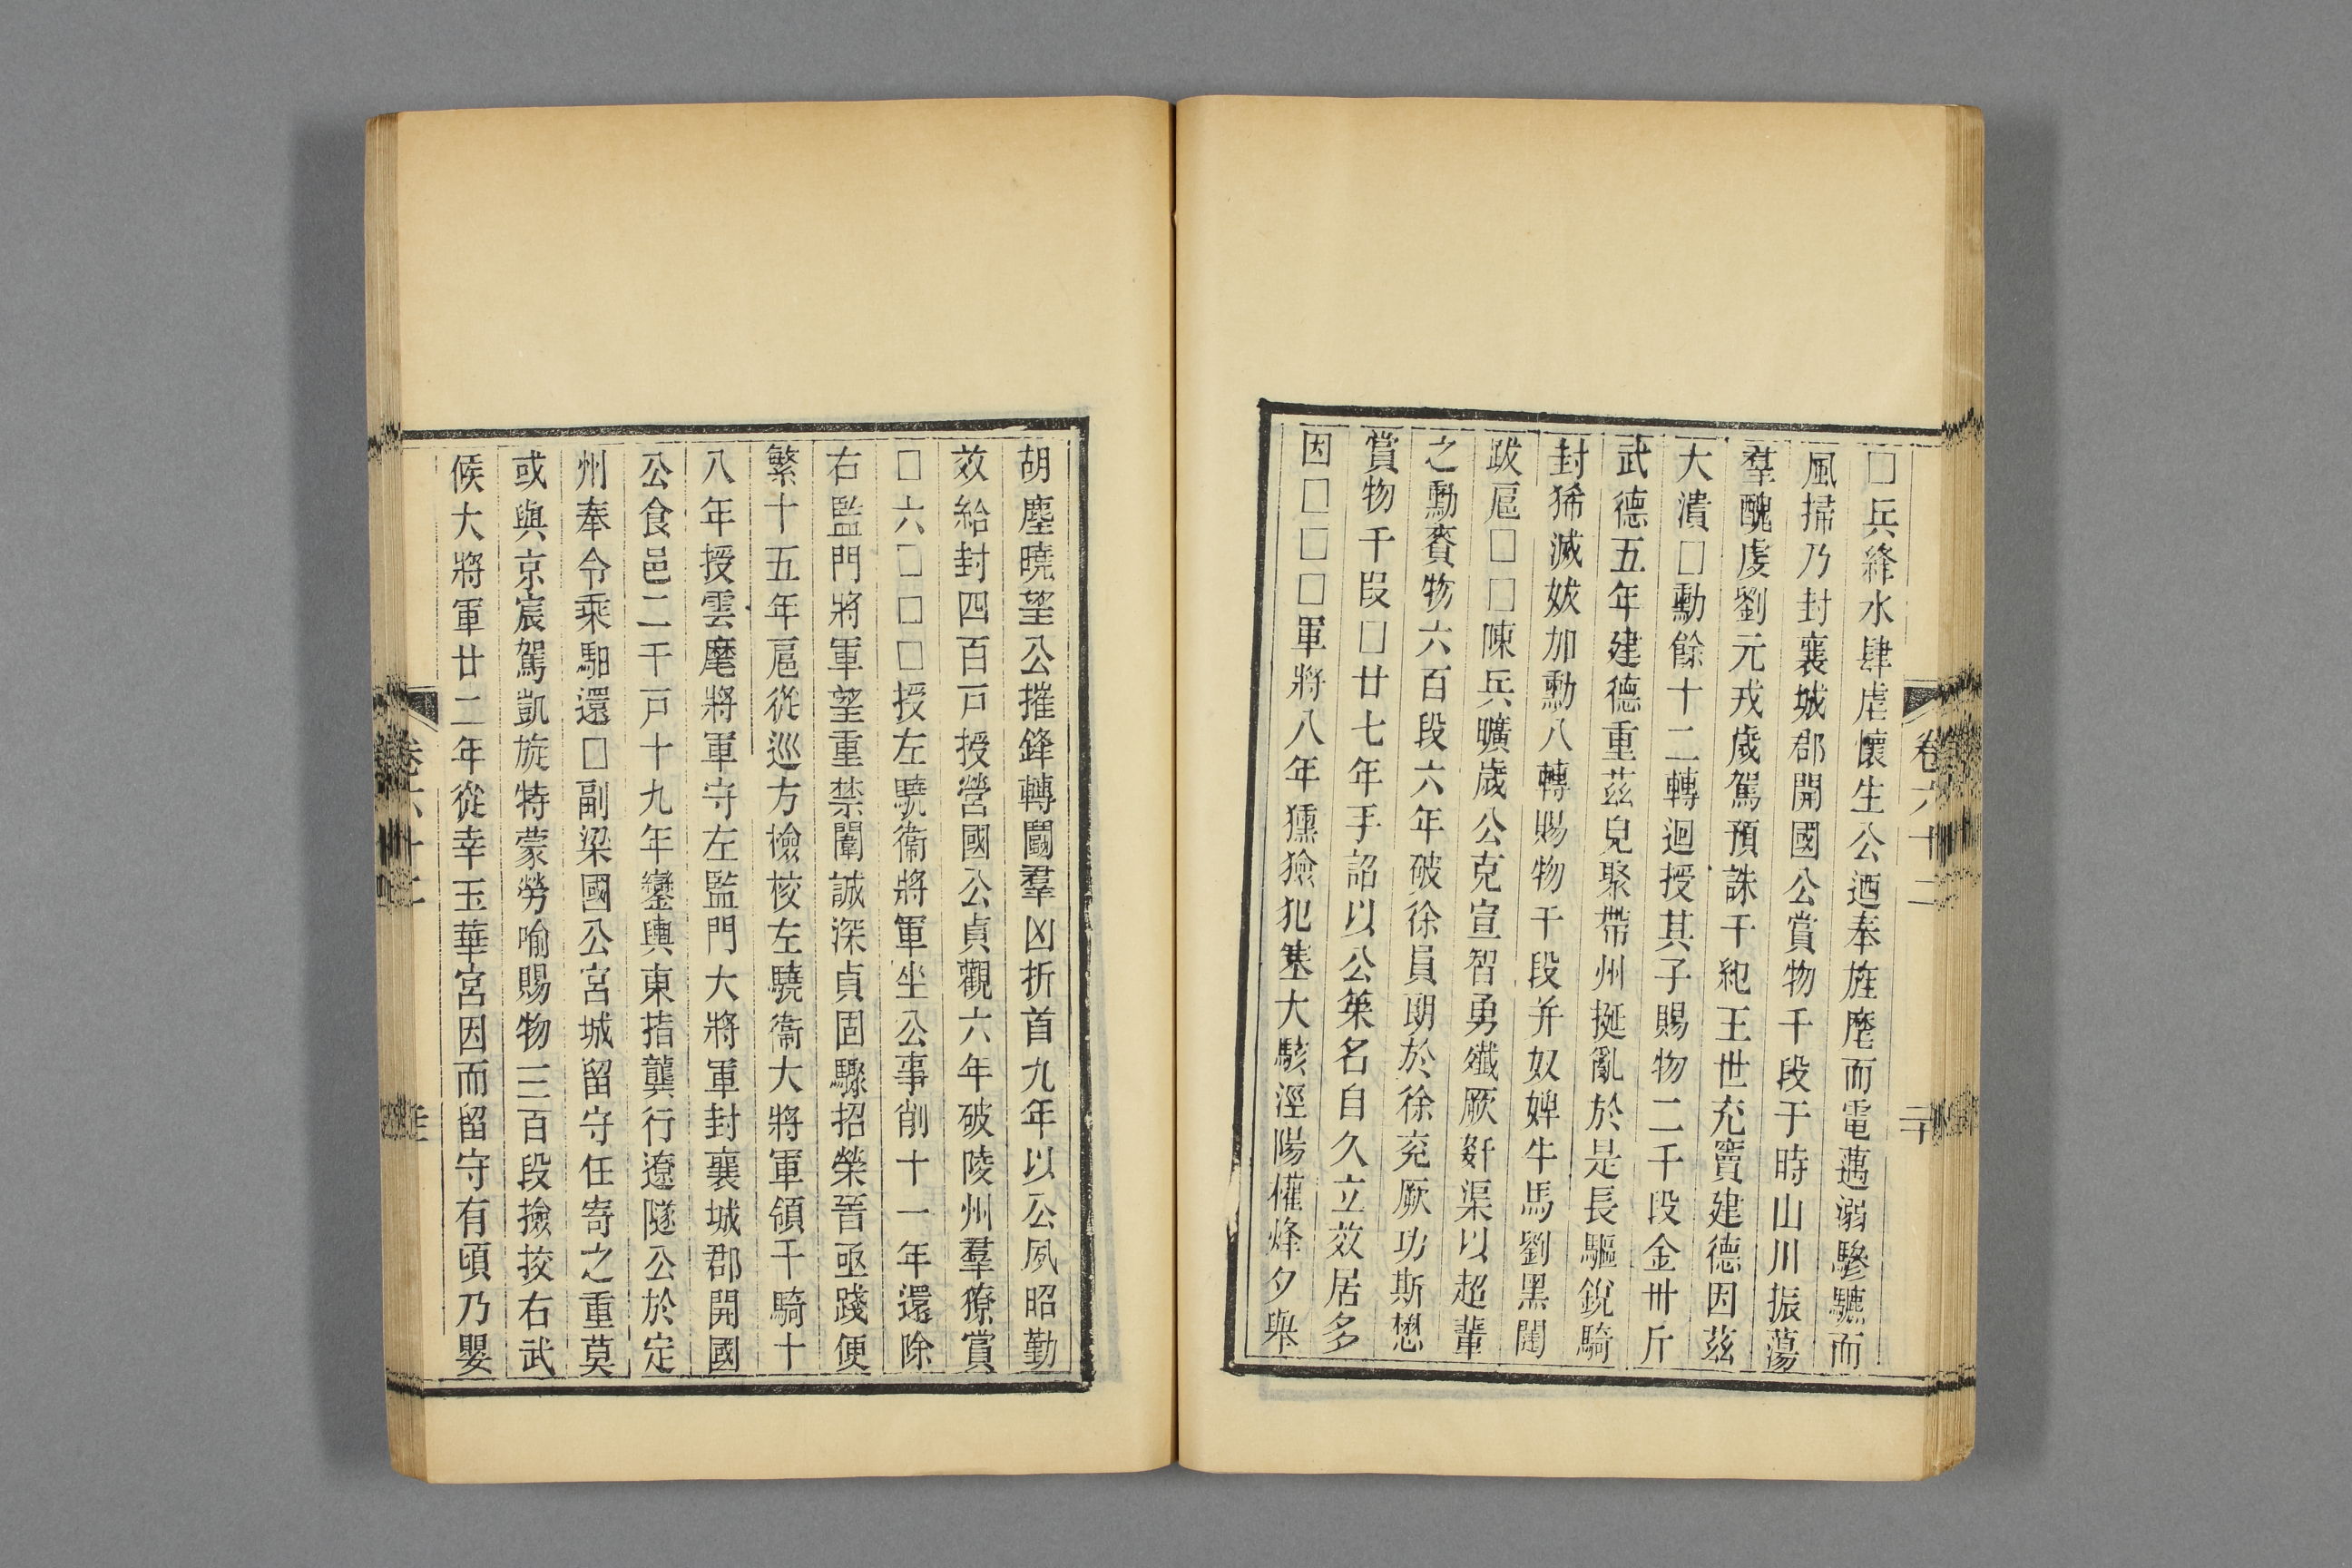 □兵絳水肆虐懷生公迺奉旌麾而電邁溺驂驦而
風掃乃封襄城郡開國公賞物千段于時山川振蕩
羣醜虔劉元戎歲駕預誅千紀王世充竇建德因茲
大潰□勳餘十二轉迴授其子賜物二千段金卅斤
武德五年建德重茲皃聚帶州挻亂於是長驅銳騎
封狶滅妭加勳八轉賜物千段并奴婢牛馬劉黑闥
跋扈□□陳兵曠歲公克宣智勇殱厥姧渠以超輩
之勳賚物六百段六年破徐員朗於徐兖厥功斯懋
賞物千段□廿七年手詔以公策名自久立效居多
因□□□軍將八年獯獫犯塞大駭涇陽爟烽夕舉
卷六十二
二十
胡塵曉望公摧鋒轉鬭羣凶折首九年以公夙昭勤
效給封四百戸授營國公貞觀六年破陵州羣獠賞
□六□□□授左驍衞將軍坐公事削十一年還除
右監門將軍望重禁闈誠深貞固驟招榮晉亟踐便
繁十五年扈從巡方檢校左驍衞大將軍領千騎十
八年授雲麾將軍守左監門大將軍封襄城郡開國
公食邑二千戸十九年鑾輿東指龔行遼隧公於定
州奉令乘馹還□副梁國公宮城留守任寄之重莫
或與京宸駕凱旋特蒙勞喻賜物三百段撿挍右武
候大將軍廿二年從幸玉華宮因而留守有頃乃嬰
卷六十二